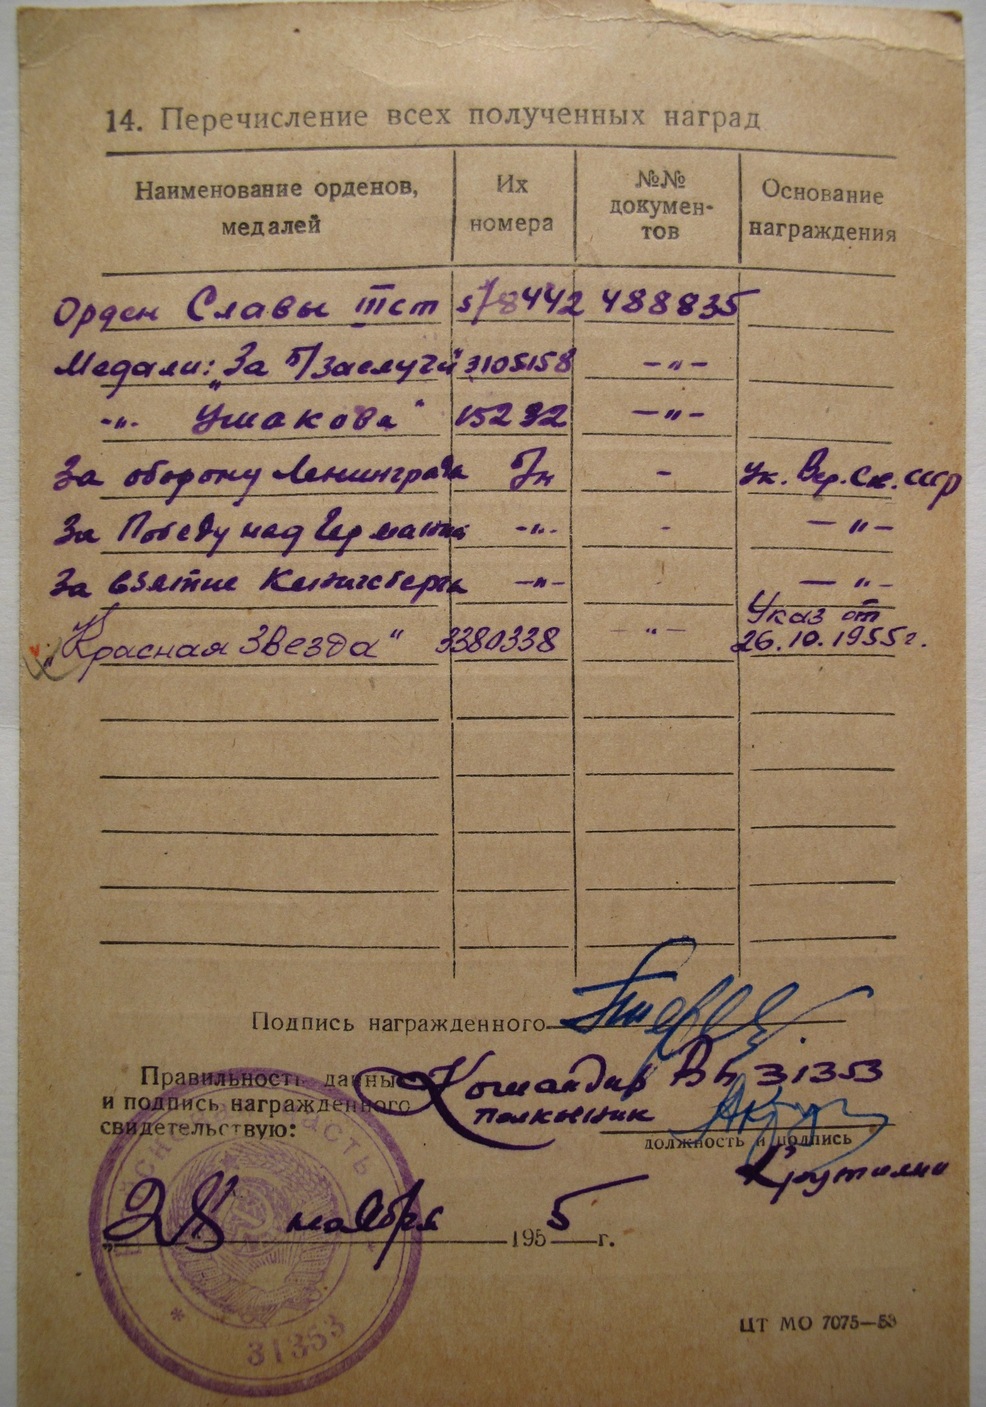 14. Перечисление всех полученных наград
Наименование орденов, медалей | Их номера | №№ докумен-тов | Основание награждения
Орден Славы III ст 578442 488835
Медали: "За б/заслуги" 3105158 -"-
-"- Ушакова" 15292 -"-
За оборону Ленинграда б/н - Ук. Вер. Св. СССР
За Победу над Германией -"- - -"-
За взятие Кенигсберга -"- - -"-
Указ от
"Красная Звезда" 3380338 -"- 26.10.1955 г.
Подпись награжденного
Правильность данных Командир В/ч 31353
и подпись награжденного полковник
свидетельствую:
должность и подпись
Крутилин
"28" ноября 1955 г.
31353
ЦТ МО 7075—53